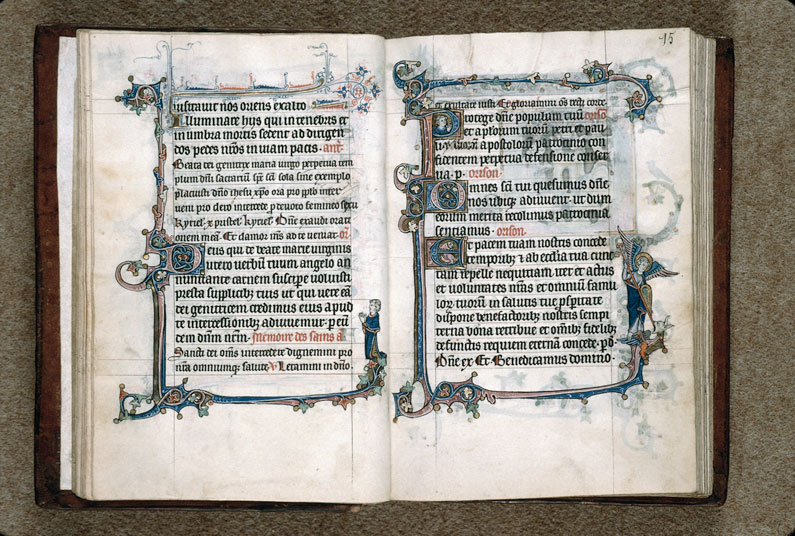 uisitauit nos oriens ex alto
Illuminare hijs qui in tenebris et
in umbra mortis sedent ad dirigen
dos pedes nr̄os in uiam pacis. ant̄.
Beata dei genitrix maria uirgo perpetua tem
plum dn̄i sacrarium sp̄c sc̄i sola sine exemplo
placuisti dn̄o ih̄esu xp̄o ora pro pp̄lo inter
ueni pro clero intercede p̄ deuoto femineo sexu
Kyriel̄. xp̄istel̄. kyriel̄. Dn̄e exaudi orati
onem meā. Et clamor m̄s ad te ueniat. or̄.
Deus qui de beate marie uirginis
utero uerbū tuum angelo an
nuntiante carnem suscipe uoluisti
presta supplicib; tuis ut qui uere eā
dei genitricem credimus eius apud
te intercessionib; adiuuemur. p̄ eū
dem dn̄m nr̄m. Memoire des sains. a.
Sancti dei om̄s intercedere dignemini pro
nr̄a omniumq; salute. v̄. Letamini in dn̄o
15
et exultate iusti. Et gloriamini om̄s recti corde.
Protege dn̄e populum tuū orison
et aplorum tuorū petri et pau
li et aliorū apostolorum patrocinio con
fidentem perpetua defensione conser
ua. p. orison.
Omnes sc̄i tui quesumus dn̄e
nos ubiq; adiuuent. ut dum
eorum merita recolimus patrocinia
sentiamus. orison.
Et pacem tuam nostris concede
temporib; et ab ecc̄lia tua cunc
tam repelle nequitiam. iter et actus
et uoluntates nr̄as et omnium famu
lor tuorū in salutis tue pspitate
dispone benefactorib; nostris sempi
terna bona retribue et omīb; fidelib;
defunctis requiem eternā concede. p̄ d.
Dn̄e ex. Et. Benedicamus domino.